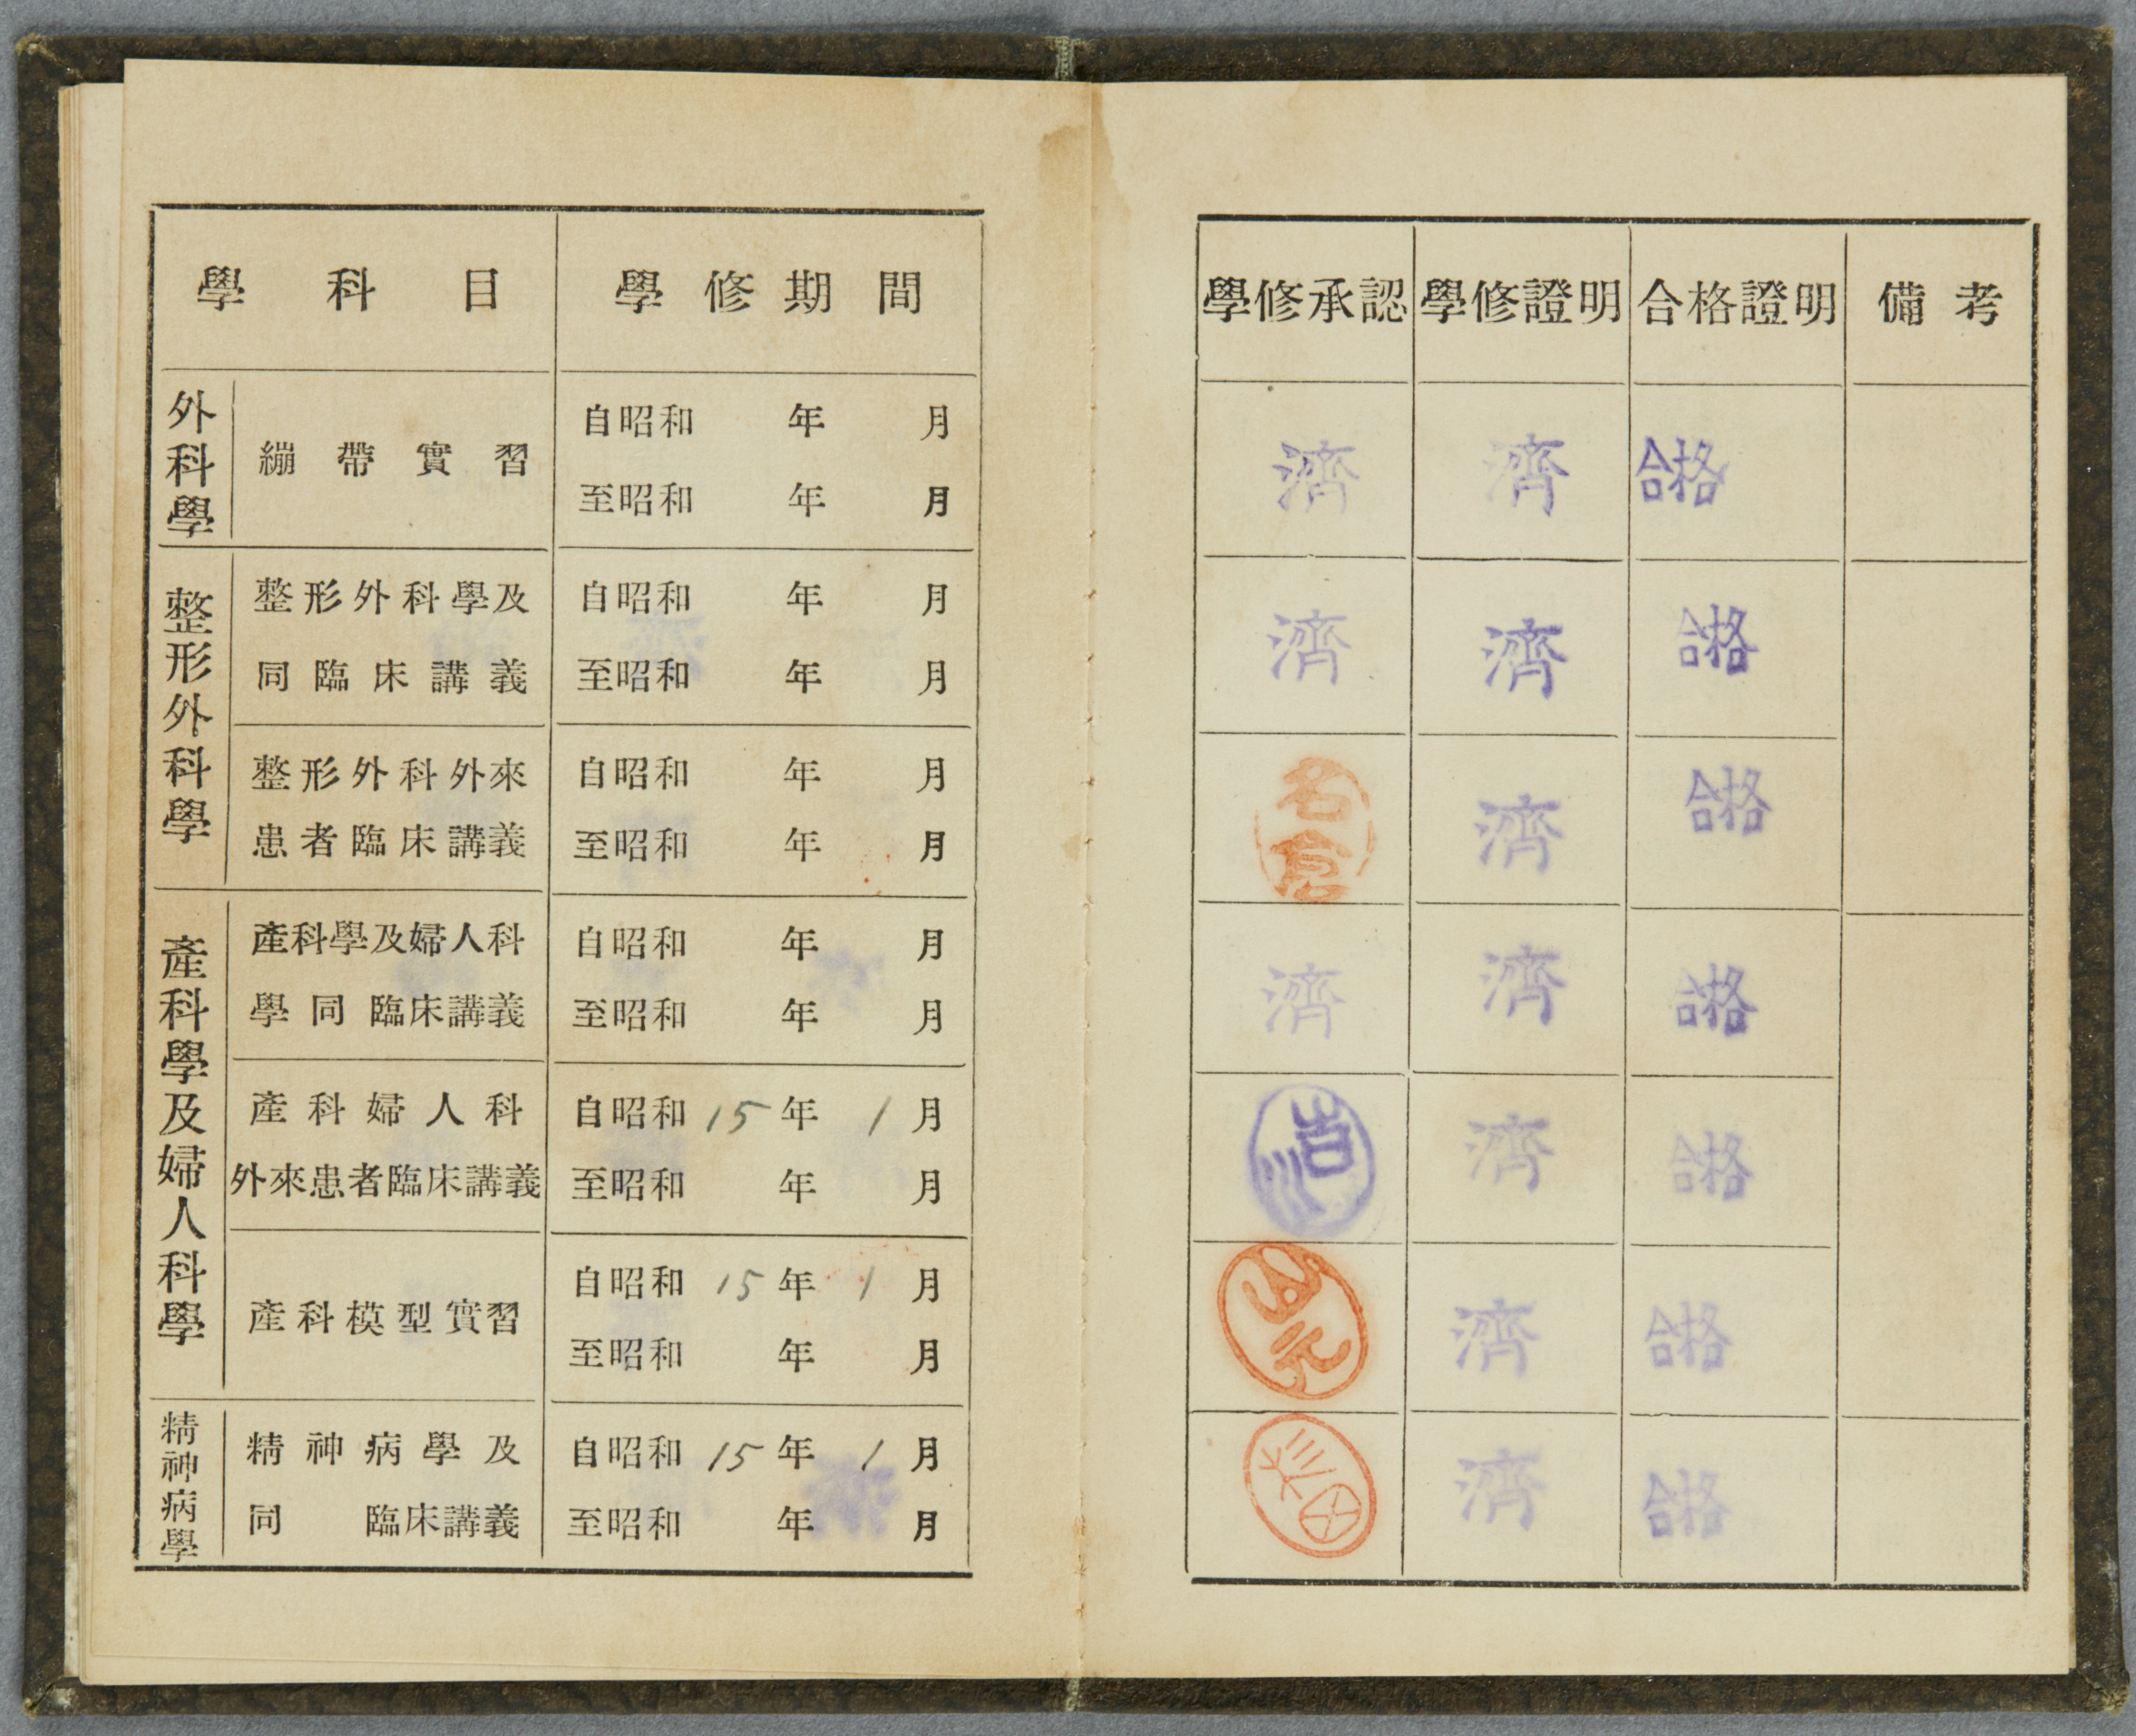 學科目 學修期間 學修承認 學修證明 合格證明 備考
外科學
繃帶實習
自昭和 年 月
至昭和 年 月
濟 濟 合格
整形外科學
整形外科學及
同臨床講義
自昭和 年 月
至昭和 年 月
濟 濟 合格
整形外科外來
患者臨床講義
自昭和 年 月
至昭和 年 月
名倉 濟 合格
產科學及婦人科學
產科學及婦人科
學同臨床講義
自昭和 年 月
至昭和 年 月
濟 濟 合格
產科婦人科
外來患者臨床講義
自昭和 15 年 1 月
至昭和 年 月
濟 合格
產科模型實習
自昭和 15 年 1 月
至昭和 年 月
山元 濟 合格
精神病學
精神病學及
同臨床講義
自昭和 15 年 1 月
至昭和 年 月
濟 合格